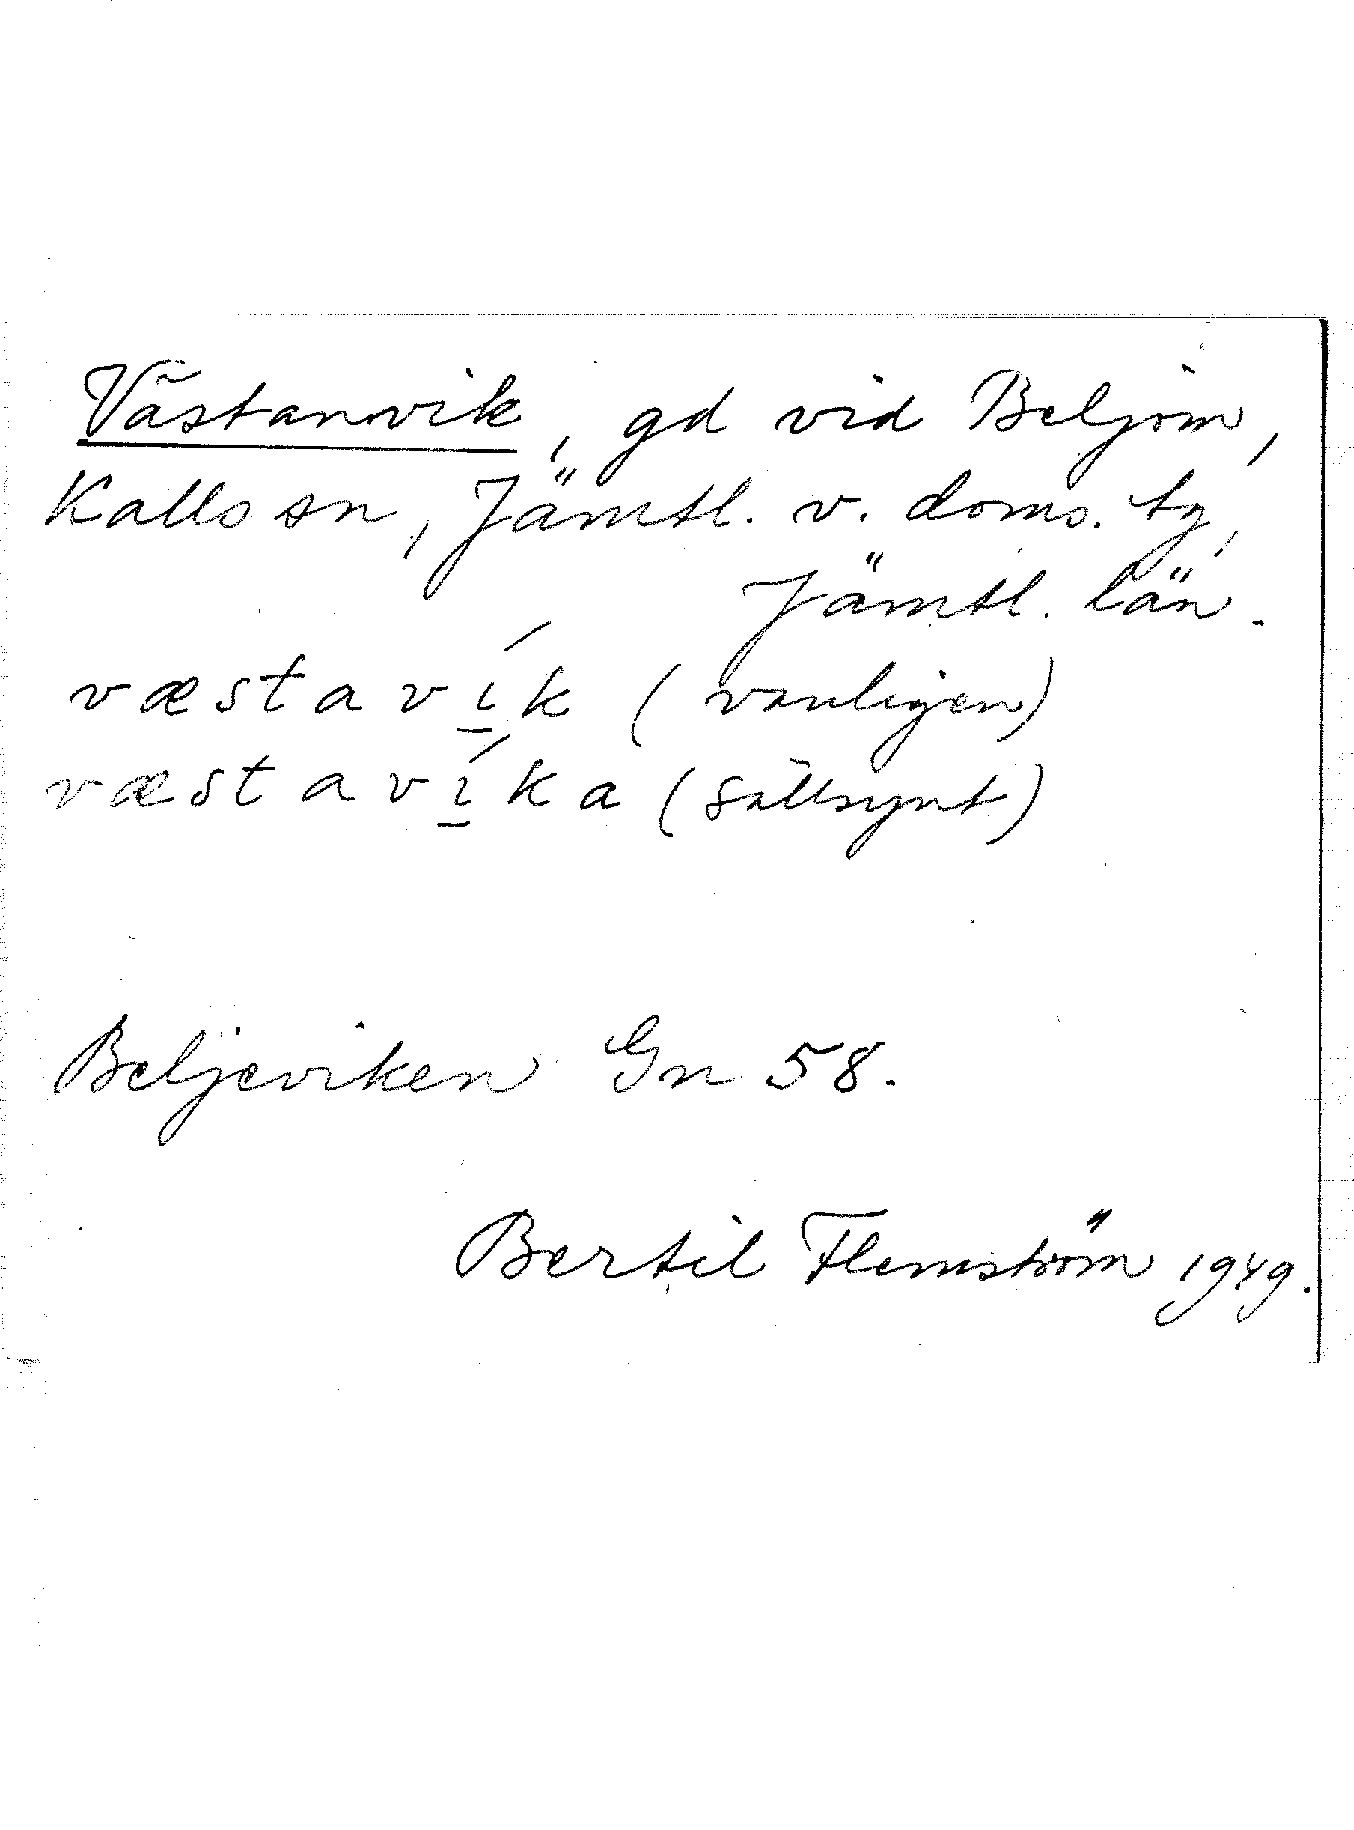 Västanvik, gd vid Beljom,
Kalls sn, Jämtl. v. doms. tg,
Jämtl. län.
væstaví̱k (vanligen)
væstaví̱ka (sällsynt)
Beljeviken Gn 58.
Bertil Flemström 1949.